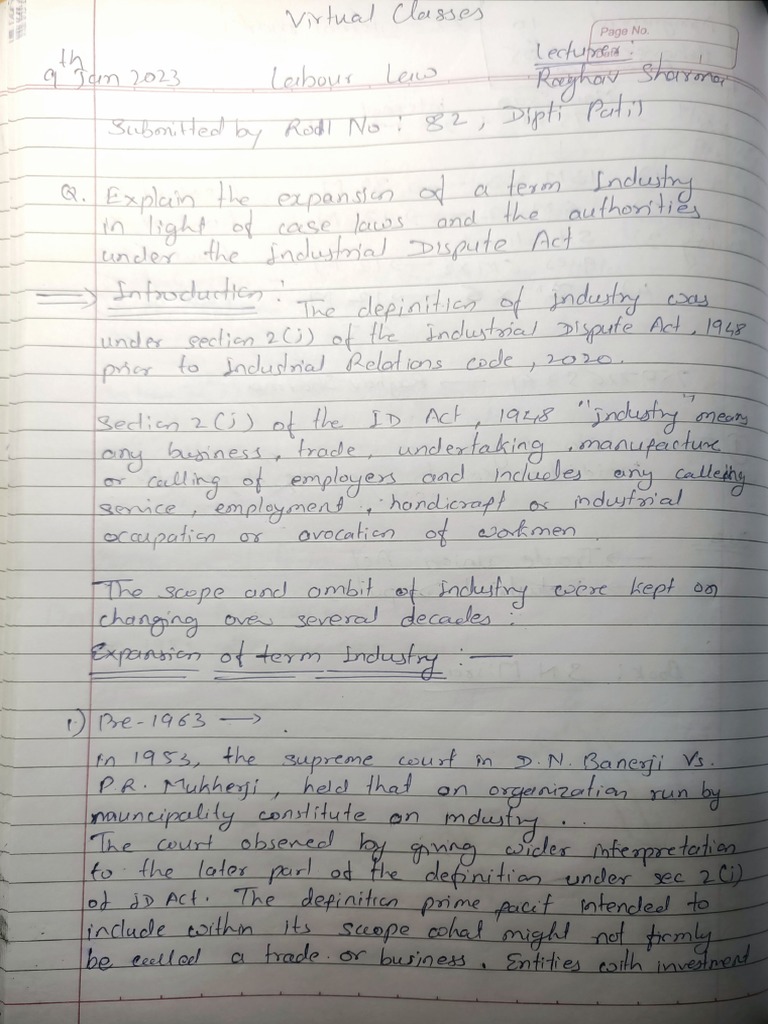 Virtual Classes
Page No.
9th Jan 2023 Labour Law Lecturer:
Raghav Sharma
Submitted by Roll No : 82, Dipti Patil
Q. Explain the expansion of a term Industry
in light of case laws and the authorities
under the Industrial Dispute Act
⇒ Introduction : The definition of industry was
under section 2(j) of the Industrial Dispute Act, 1948
prior to Industrial Relations code, 2020.
Section 2(j) of the ID Act, 1948 "industry" means
any business, trade, undertaking, manufacture
or calling of employers and includes any calling
service, employment, handicraft or industrial
occupation or avocation of workmen.
The scope and ambit of industry were kept on
changing over several decades :
Expansion of term Industry :—
1.) Pre-1963 →
In 1953, the supreme court in D.N. Banerji Vs.
P.R. Mukherji, held that an organization run by
nauncipality constitute an industry.
The court observed by giving wider interpretation
to the later part of the definition under sec 2(j)
of ID Act. The definition prime facit intended to
include within its scope what might not firmly
be called a trade or business. Entities with investment